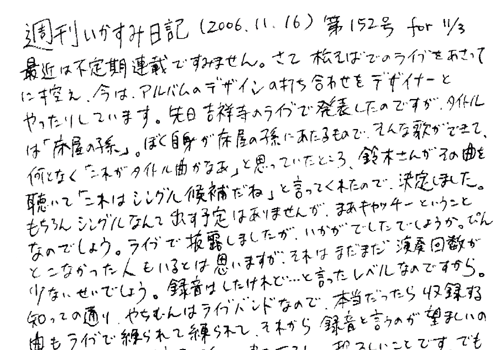 週刊いかすみ日記(2006.11.16) 第152号 for 11/3
最近は不定期連載ですみません。さて 松そばでのライブをあさって
に控え、今は、アルバムのデザインの打ち合わせをデザイナーと
やったりしています。先日吉祥寺のライブで発表したのですが、タイトル
は「床屋の孫」。ぼく自身が床屋の孫にあたるもので、そんな歌ができて、
何となく「これがタイトル曲かなあ」と思っていたところ、鈴木さんがその曲を
聴いて「これはシングル候補だね」と言ってくれたので、決定しました。
もちろんシングルなんて出す予定はありませんが、まあキャッチーということ
なのでしょう。ライブで披露しましたが、いかがでしたでしょうか。ぴん
とこなかった人もいるとは思いますが、それはまだまだ演奏回数が
少ないせいでしょう。録音はしたけれど…と言ったレベルなのですから。
知っての通り、やちむんはライブバンドなので、本当だったら収録する
曲もライブで練られて練られて、それから録音と言うのが望ましいの
しいことです。でも